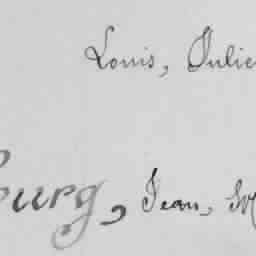 Louis, Julie
burg, Jean, M